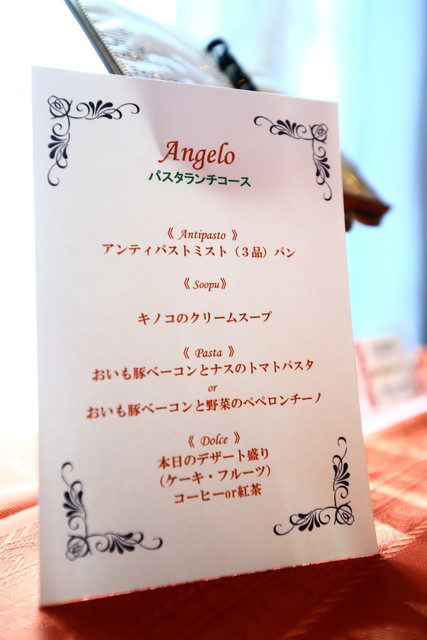 Angelo
パスタランチコース
《 Antipasto 》
アンティパストミスト（３品）パン
《 Soopu》
キノコのクリームスープ
《 Pasta 》
おいも豚ベーコンとナスのトマトパスタ
or
おいも豚ベーコンと野菜のペペロンチーノ
《 Dolce 》
本日のデザート盛り
（ケーキ・フルーツ）
コーヒーor紅茶